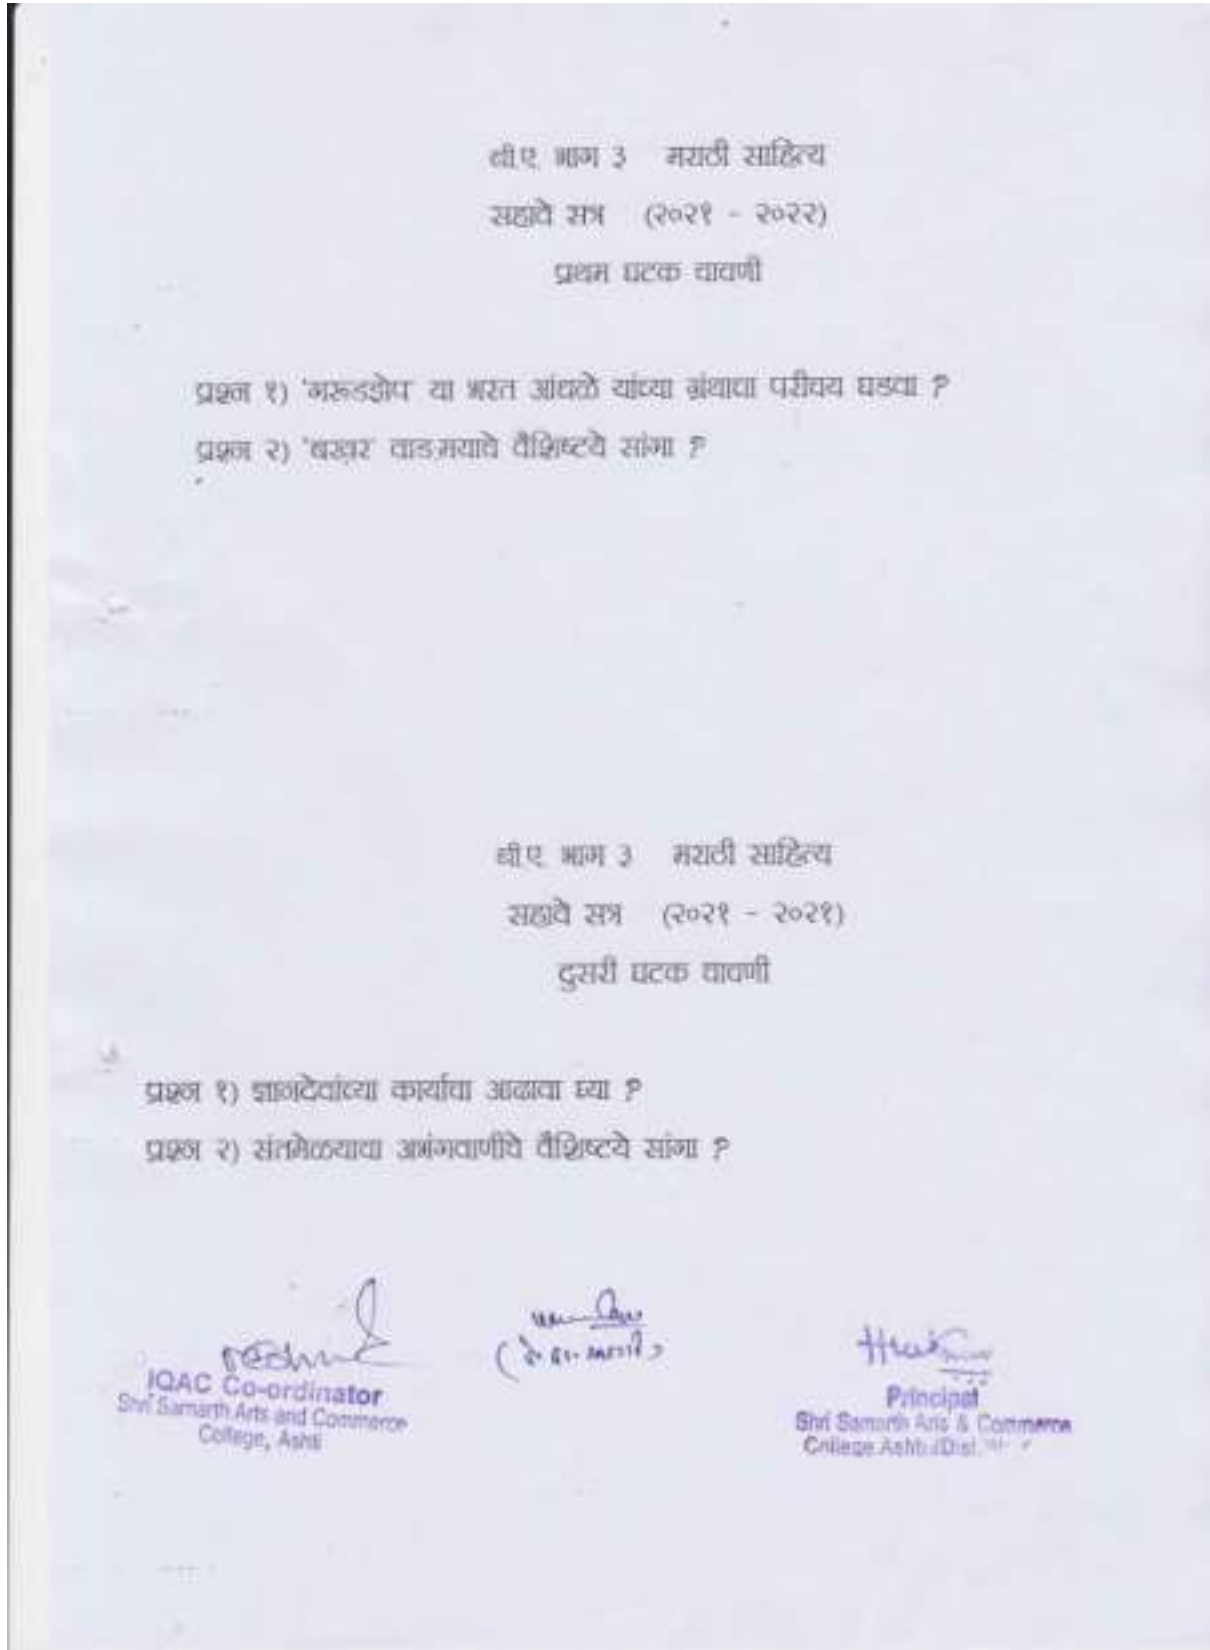 बी.ए. भाग ३ मराठी साहित्य
सहावे सत्र (२०२१ - २०२२)
प्रथम घटक चाचणी
प्रश्न १) 'गरूडझेप' या भरत आंधळे यांच्या ग्रंथाचा परीचय घडवा ?
प्रश्न २) 'बखर' वाड.मयाचे वैशिष्टये सांगा ?
बी.ए. भाग ३ मराठी साहित्य
सहावे सत्र (२०२१ - २०२१)
दुसरी घटक चाचणी
प्रश्न १) ज्ञानदेवांच्या कार्याचा आढावा घ्या ?
प्रश्न २) संतमेळयाचा अभंगवाणीचे वैशिष्टये सांगा ?
IQAC Co-ordinator
Shri Samarth Arts and Commerce
College, Ashti
Principal
Shri Samarth Arts & Commerce
College Ashti (Dist.